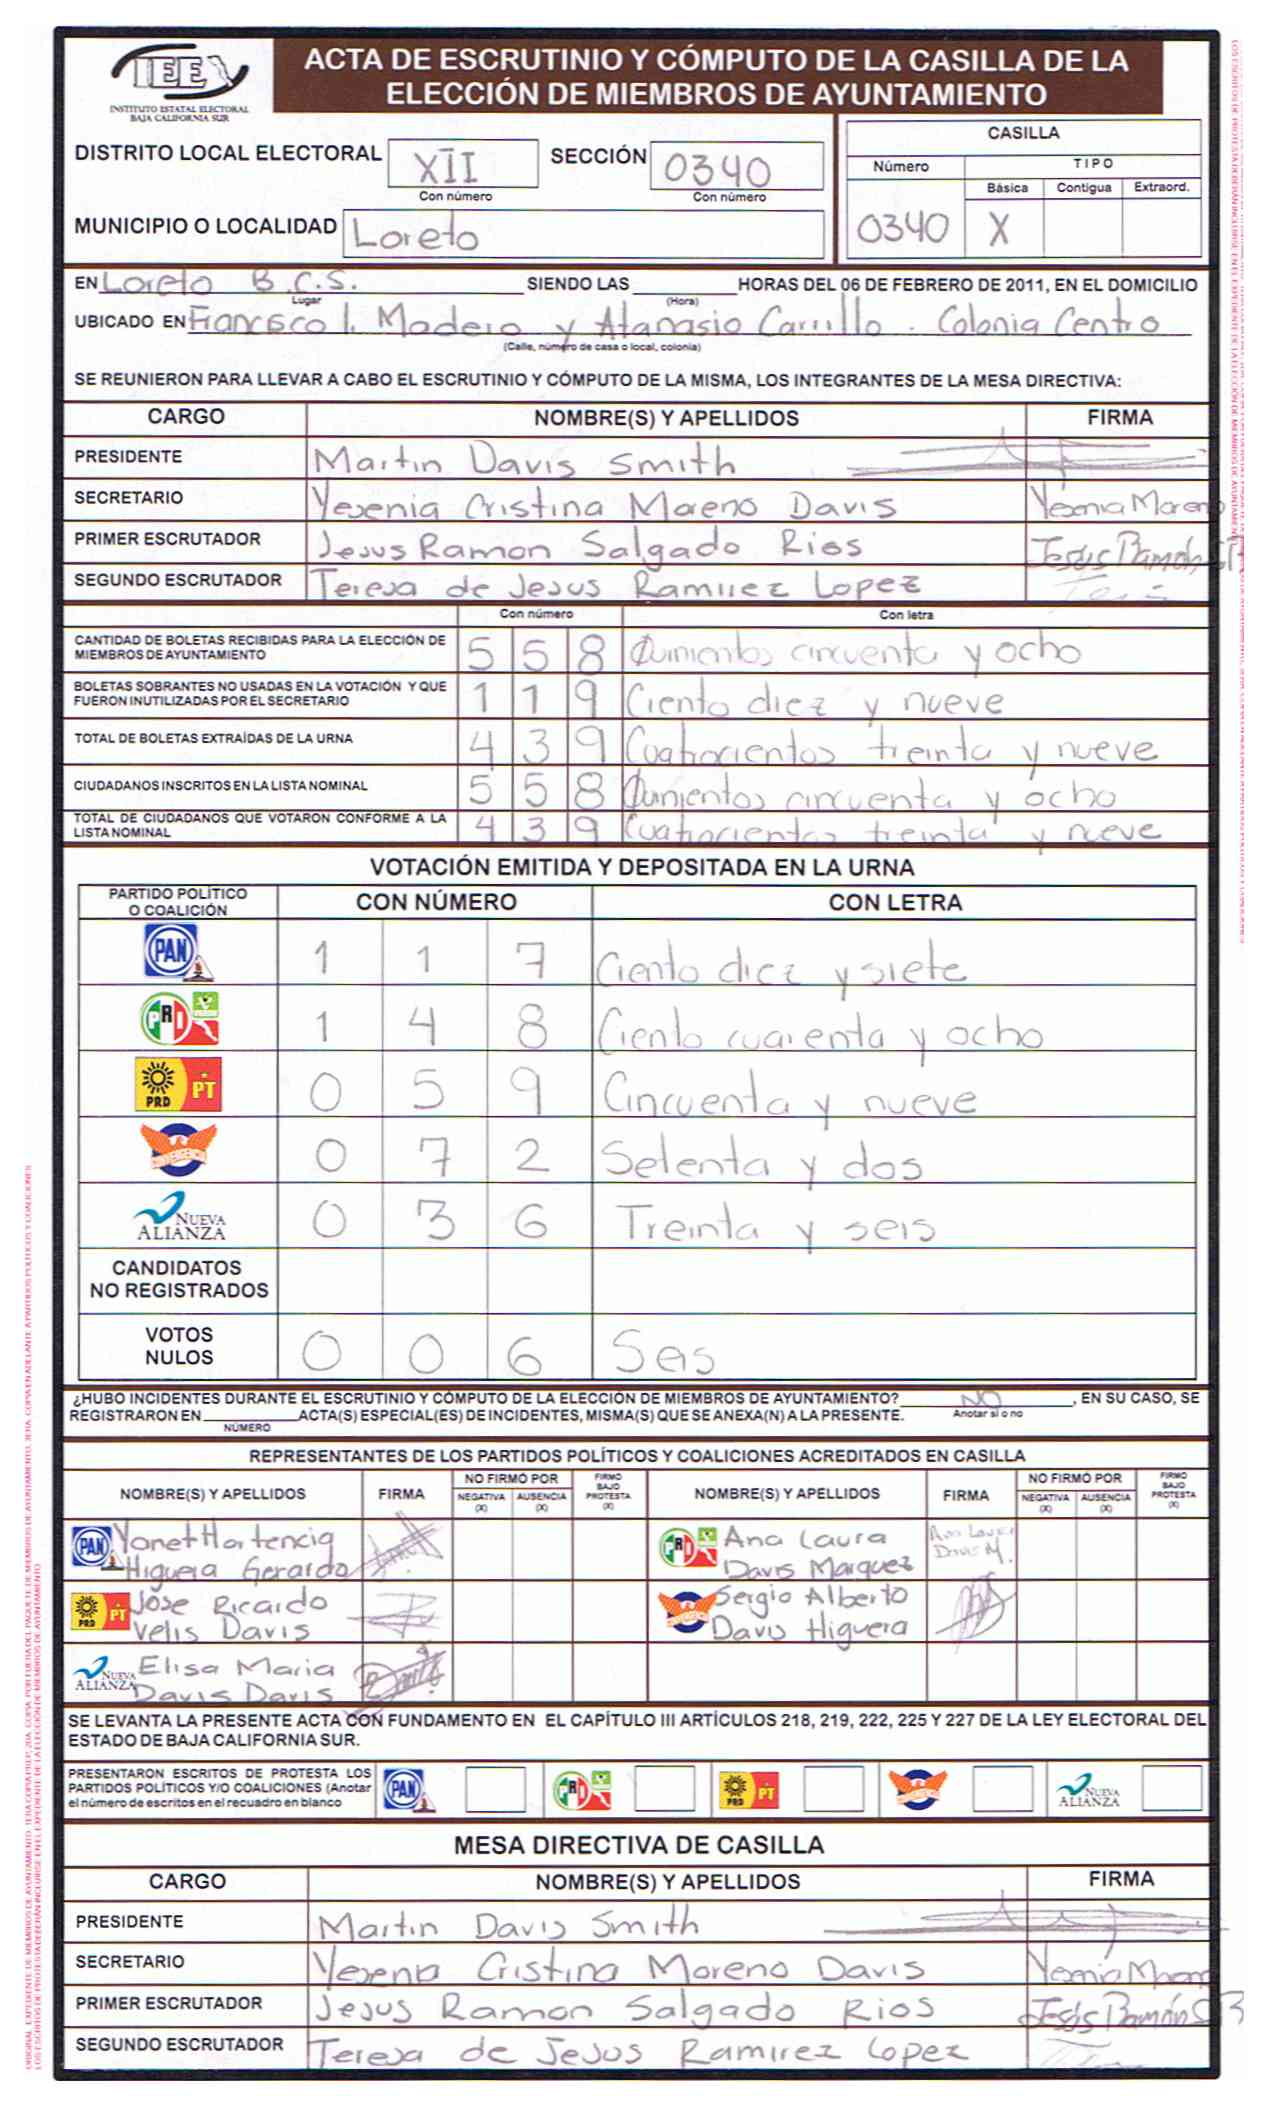 IEEBCS
INSTITUTO ESTATAL ELECTORAL
BAJA CALIFORNIA SUR
ACTA DE ESCRUTINIO Y CÓMPUTO DE LA CASILLA DE LA
ELECCIÓN DE MIEMBROS DE AYUNTAMIENTO
DISTRITO LOCAL ELECTORAL XII SECCIÓN 0340
Con número Con número
MUNICIPIO O LOCALIDAD Loreto
CASILLA
Número TIPO
Básica Contigua Extraord.
0340 X
EN Loreto B.C.S. SIENDO LAS HORAS DEL 06 DE FEBRERO DE 2011, EN EL DOMICILIO
Lugar (Hora)
UBICADO EN Francisco I. Madero y Atanasio Carrillo. Colonia Centro
(Calle, número de casa o local, colonia)
SE REUNIERON PARA LLEVAR A CABO EL ESCRUTINIO Y CÓMPUTO DE LA MISMA, LOS INTEGRANTES DE LA MESA DIRECTIVA:
CARGO NOMBRE(S) Y APELLIDOS FIRMA
PRESIDENTE Martin Davis Smith
SECRETARIO Yesenia Cristina Moreno Davis Yesenia Moreno
PRIMER ESCRUTADOR Jesus Ramon Salgado Rios Jesús Ramón S R
SEGUNDO ESCRUTADOR Teresa de Jesus Ramirez Lopez
Con número Con letra
CANTIDAD DE BOLETAS RECIBIDAS PARA LA ELECCIÓN DE
MIEMBROS DE AYUNTAMIENTO 5 5 8 Quinientos cincuenta y ocho
BOLETAS SOBRANTES NO USADAS EN LA VOTACIÓN Y QUE
FUERON INUTILIZADAS POR EL SECRETARIO 1 1 9 Ciento diez y nueve
TOTAL DE BOLETAS EXTRAÍDAS DE LA URNA 4 3 9 Cuatrocientos treinta y nueve
CIUDADANOS INSCRITOS EN LA LISTA NOMINAL 5 5 8 Quinientos cincuenta y ocho
TOTAL DE CIUDADANOS QUE VOTARON CONFORME A LA
LISTA NOMINAL 4 3 9 Cuatrocientos treinta y nueve
VOTACIÓN EMITIDA Y DEPOSITADA EN LA URNA
PARTIDO POLÍTICO
O COALICIÓN CON NÚMERO CON LETRA
PAN 1 1 7 Ciento diez y siete
PRI 1 4 8 Ciento cuarenta y ocho
PRD PT 0 5 9 Cincuenta y nueve
CONVERGENCIA 0 7 2 Setenta y dos
NUEVA ALIANZA 0 3 6 Treinta y seis
CANDIDATOS
NO REGISTRADOS
VOTOS
NULOS 0 0 6 Seis
¿HUBO INCIDENTES DURANTE EL ESCRUTINIO Y CÓMPUTO DE LA ELECCIÓN DE MIEMBROS DE AYUNTAMIENTO? NO, EN SU CASO, SE
REGISTRARON EN ACTA(S) ESPECIAL(ES) DE INCIDENTES, MISMA(S) QUE SE ANEXA(N) A LA PRESENTE. Anotar si o no
NÚMERO
REPRESENTANTES DE LOS PARTIDOS POLÍTICOS Y COALICIONES ACREDITADOS EN CASILLA
NOMBRE(S) Y APELLIDOS FIRMA NO FIRMÓ POR NEGATIVA (X) AUSENCIA (X) FIRMO BAJO PROTESTA (X) NOMBRE(S) Y APELLIDOS FIRMA NO FIRMÓ POR NEGATIVA (X) AUSENCIA (X) FIRMO BAJO PROTESTA (X)
PAN Yanet Hortencia
Higuera Gerardo
PRI Ana Laura
Davis Marquez
Ana Laura
Davis M.
PRD PT Jose Ricardo
Velis Davis
CONVERGENCIA Sergio Alberto
Davis Higuera
NUEVA ALIANZA Elisa Maria
Davis Davis
SE LEVANTA LA PRESENTE ACTA CON FUNDAMENTO EN EL CAPÍTULO III ARTÍCULOS 218, 219, 222, 225 Y 227 DE LA LEY ELECTORAL DEL
ESTADO DE BAJA CALIFORNIA SUR.
PRESENTARON ESCRITOS DE PROTESTA LOS
PARTIDOS POLÍTICOS Y/O COALICIONES (Anotar
el número de escritos en el recuadro en blanco
PAN PRI PRD PT CONVERGENCIA NUEVA ALIANZA
MESA DIRECTIVA DE CASILLA
CARGO NOMBRE(S) Y APELLIDOS FIRMA
PRESIDENTE Martin Davis Smith
SECRETARIO Yesenia Cristina Moreno Davis Yesenia Moreno
PRIMER ESCRUTADOR Jesus Ramon Salgado Rios Jesús Ramón S R
SEGUNDO ESCRUTADOR Teresa de Jesus Ramirez Lopez